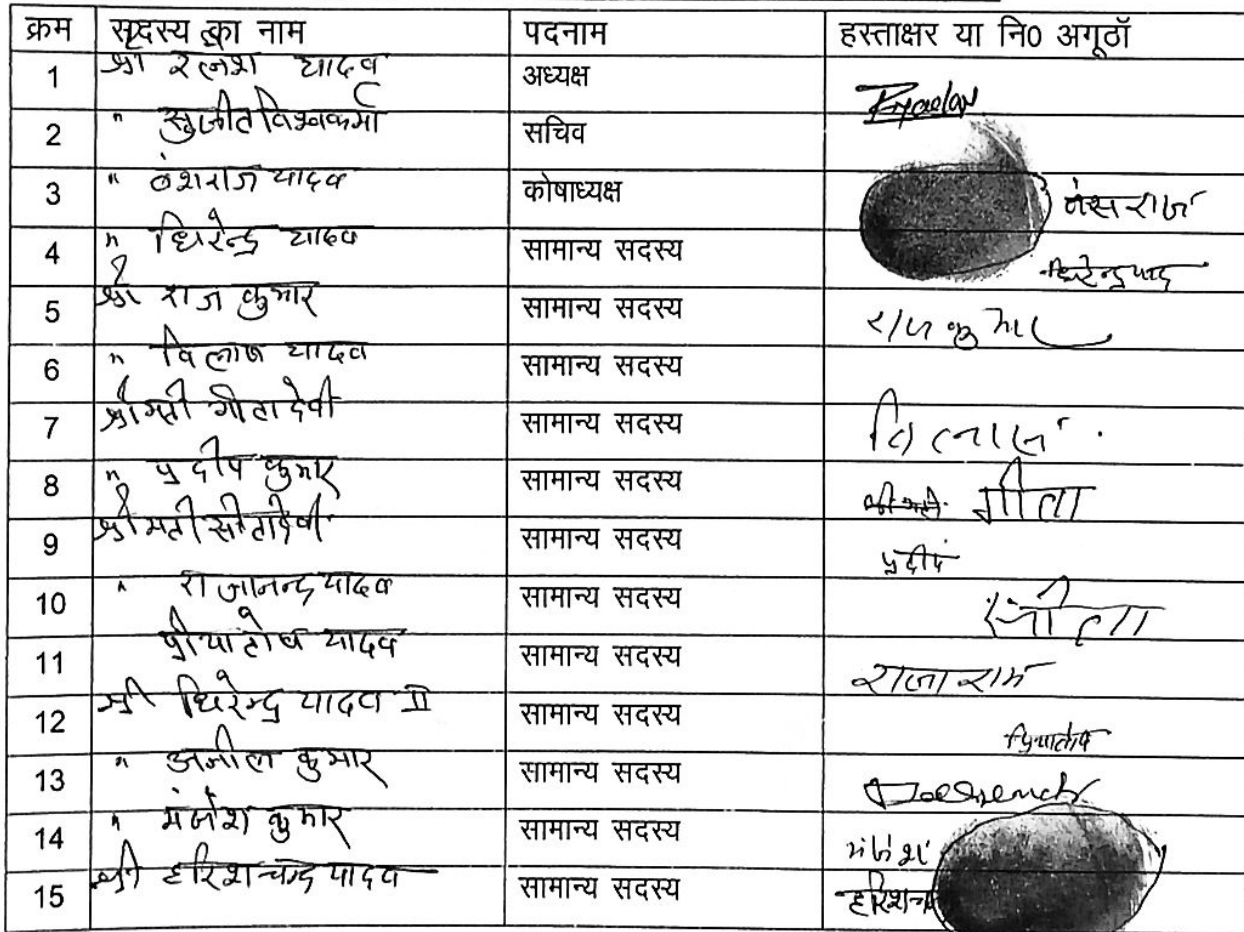 क्रम सदस्य का नाम पदनाम हस्ताक्षर या नि0 अगूठॉ
1 श्री रत्नेश यादव अध्यक्ष
2 " सुजीत विश्वकर्मा सचिव
3 " बंशराज यादव कोषाध्यक्ष बंसराज
4 " धिरेन्द्र यादव सामान्य सदस्य धिरेन्द्र याद
5 श्री राज कुमार सामान्य सदस्य राजकुमार
6 " विलाज यादव सामान्य सदस्य
7 श्रीमती गीता देवी सामान्य सदस्य विलाज
8 " प्रदीप कुमार सामान्य सदस्य गीता
9 श्रीमती सीतादेवी सामान्य सदस्य प्रदीप
10 " राजानन्द यादव सामान्य सदस्य सीता
11 प्रीयातोष यादव सामान्य सदस्य राजाराम
12 श्री धिरेन्द्र यादव II सामान्य सदस्य प्रियातोष
13 " अनील कुमार सामान्य सदस्य
14 " मंजेश कुमार सामान्य सदस्य मंजेश
15 श्री हरिशचन्द यादव सामान्य सदस्य हरिशच